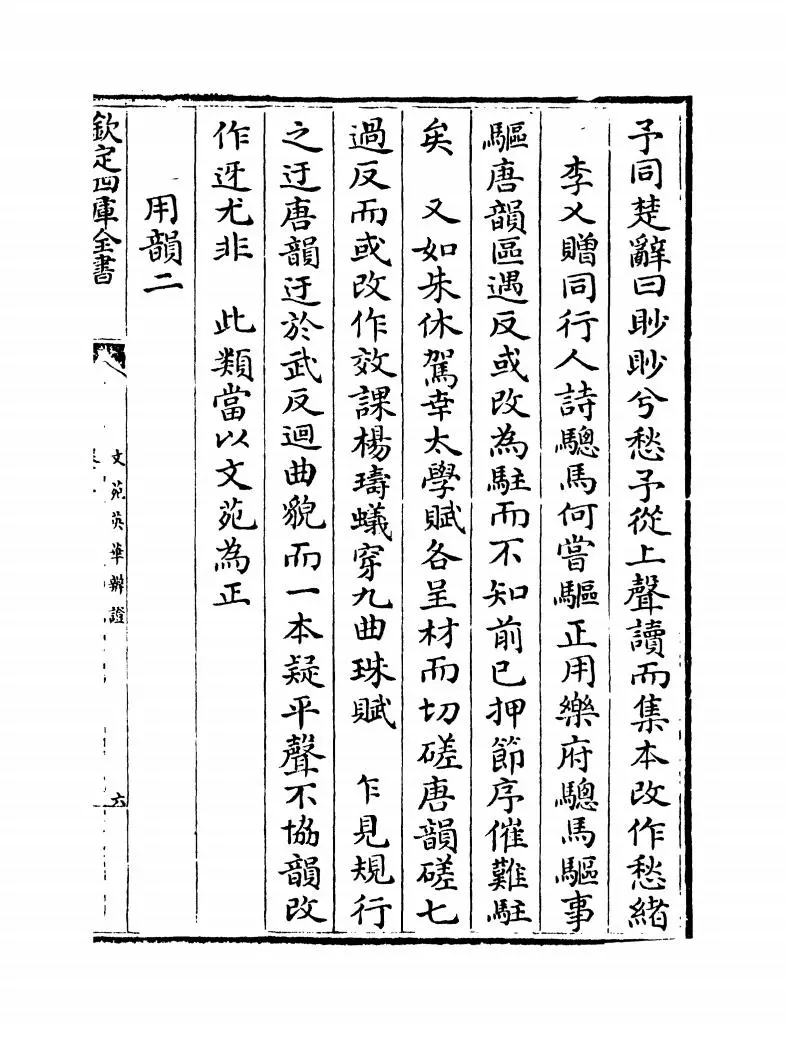 予同楚辭曰眇眇兮愁予從上聲讀而集本改作愁緒
李乂贈同行人詩驄馬何嘗驅正用樂府驄馬驅事
驅唐韻區遇反或改為駐而不知前已押節序催難駐
矣　又如朱休駕幸太學賦各呈材而切磋唐韻磋七
過反而或改作效課楊璹蟻穿九曲珠賦　乍見規行
之迂唐韻迂於武反迴曲貌而一本疑平聲不協韻改
作迓尤非　此類當以文苑為正
用韻二
欽定四庫全書
文苑英華辨證
六